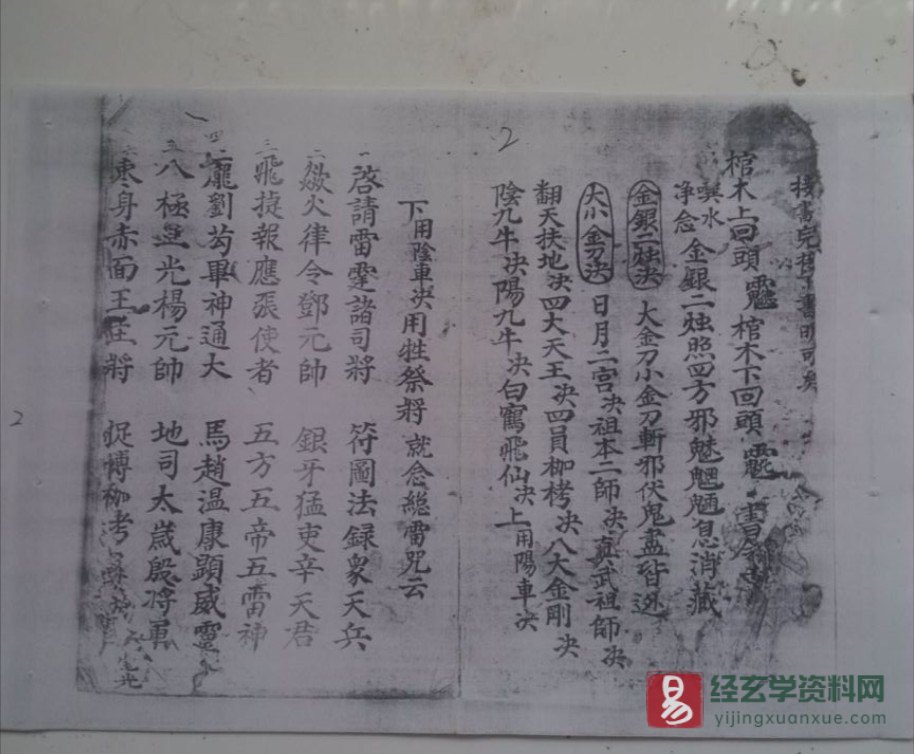 棺木上回頭 棺木下回頭
噀水净念 金銀二烛照四方邪魅魍魎息消藏
金銀二烛决 大金刀小金刀斬邪伏鬼盡皆
大小金刀决 日月二宮决祖本二師决真武祖師决
翻天扶地决四大天王决四員枷栲决八大金剛决
陰九牛决陽九牛决白鶴飛仙决上用陽車决
2
下用陰車决用牲祭将就念總雷咒云
一 啓請雷霆諸司將 符圖法録衆天兵
二 歘火律令鄧元帥 銀牙猛吏辛天君
三 飛捷報應張使者 五方五帝五雷神
四 龐劉茍畢神通大 馬趙温康顕威靈
五 八極 光楊元帥 地司太歲殷将軍
身赤面王 將 捉縛枷考
2
易
经玄学资料网
yijingxuanxue.com